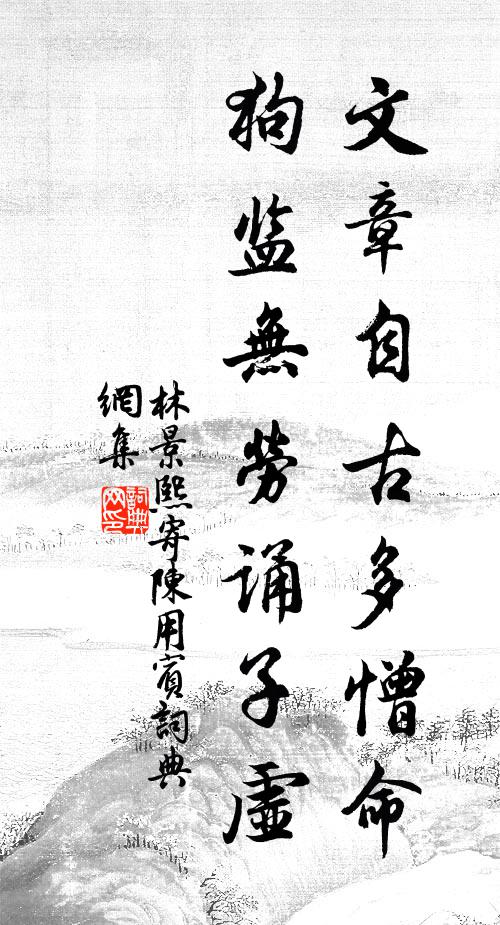 文章自古多憎命
狗监無勞诵子虛
林景熙寄陳用賓詞典
網集
詞典網印